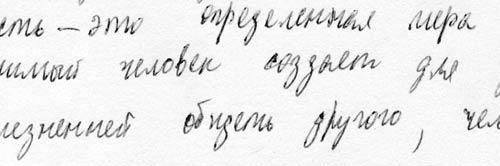 сть – это определенная мера
нимый человек создает для
лезненней обидеть другого, чем